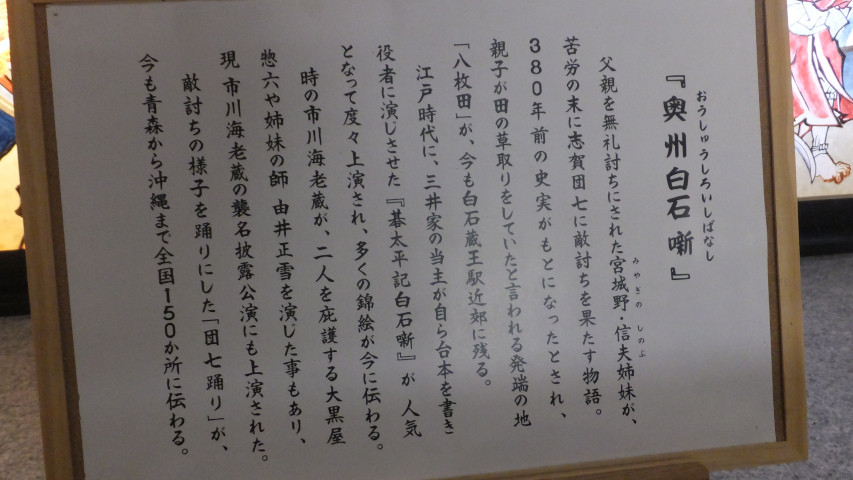 おうしゅうしろいしばなし
『奥州白石噺』
みやぎの しのぶ
父親を無礼討ちにされた宮城野・信夫姉妹が、
苦労の末に志賀団七に敵討ちを果たす物語。
380年前の史実がもとになったとされ、
親子が田の草取りをしていたと言われる発端の地
「八枚田」が、今も白石蔵王駅近郊に残る。
江戸時代に、三井家の当主が自ら台本を書き
役者に演じさせた『碁太平記白石噺』が 人気
となって度々上演され、多くの錦絵が今に伝わる。
時の市川海老蔵が、二人を庇護する大黒屋
惣六や姉妹の師 由井正雪を演じた事もあり、
現 市川海老蔵の襲名披露公演にも上演された。
敵討ちの様子を踊りにした「団七踊り」が、
今も青森から沖縄まで全国150か所に伝わる。